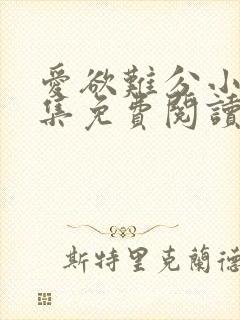 愛欲難分小
集免費閱讀
斯特里克蘭德